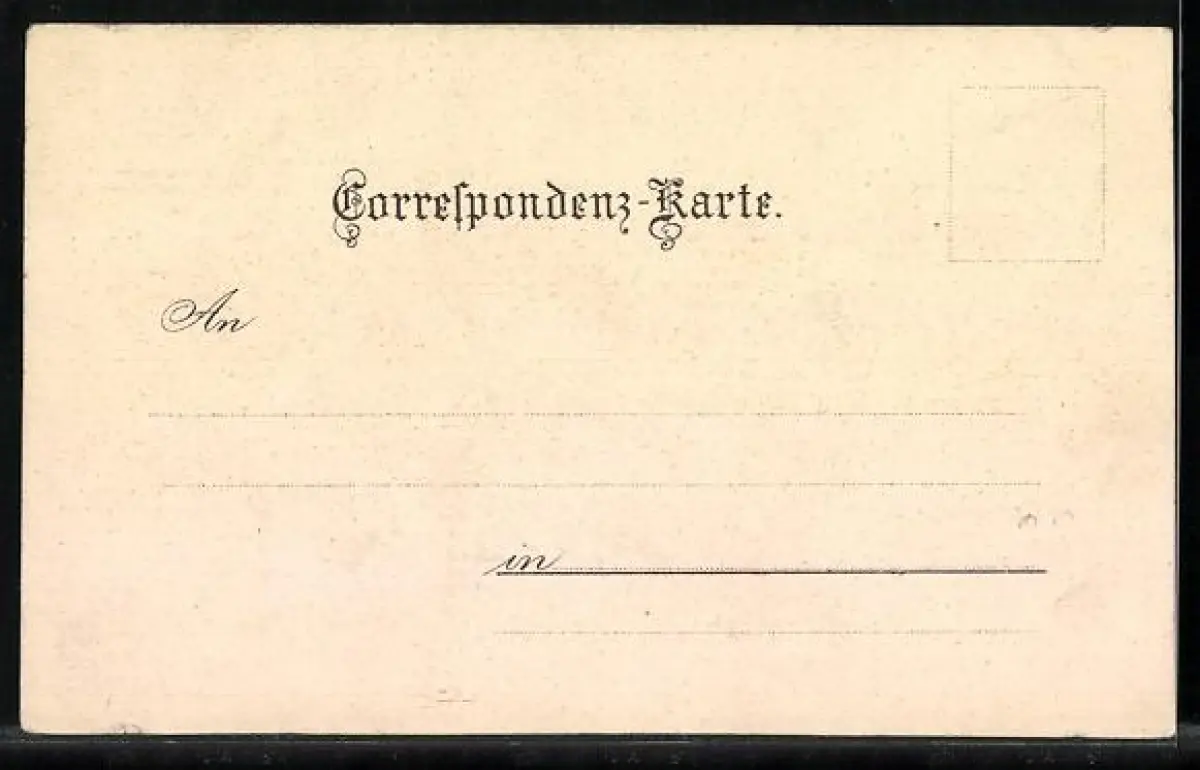 Correſpondenz-Karte.
An
in